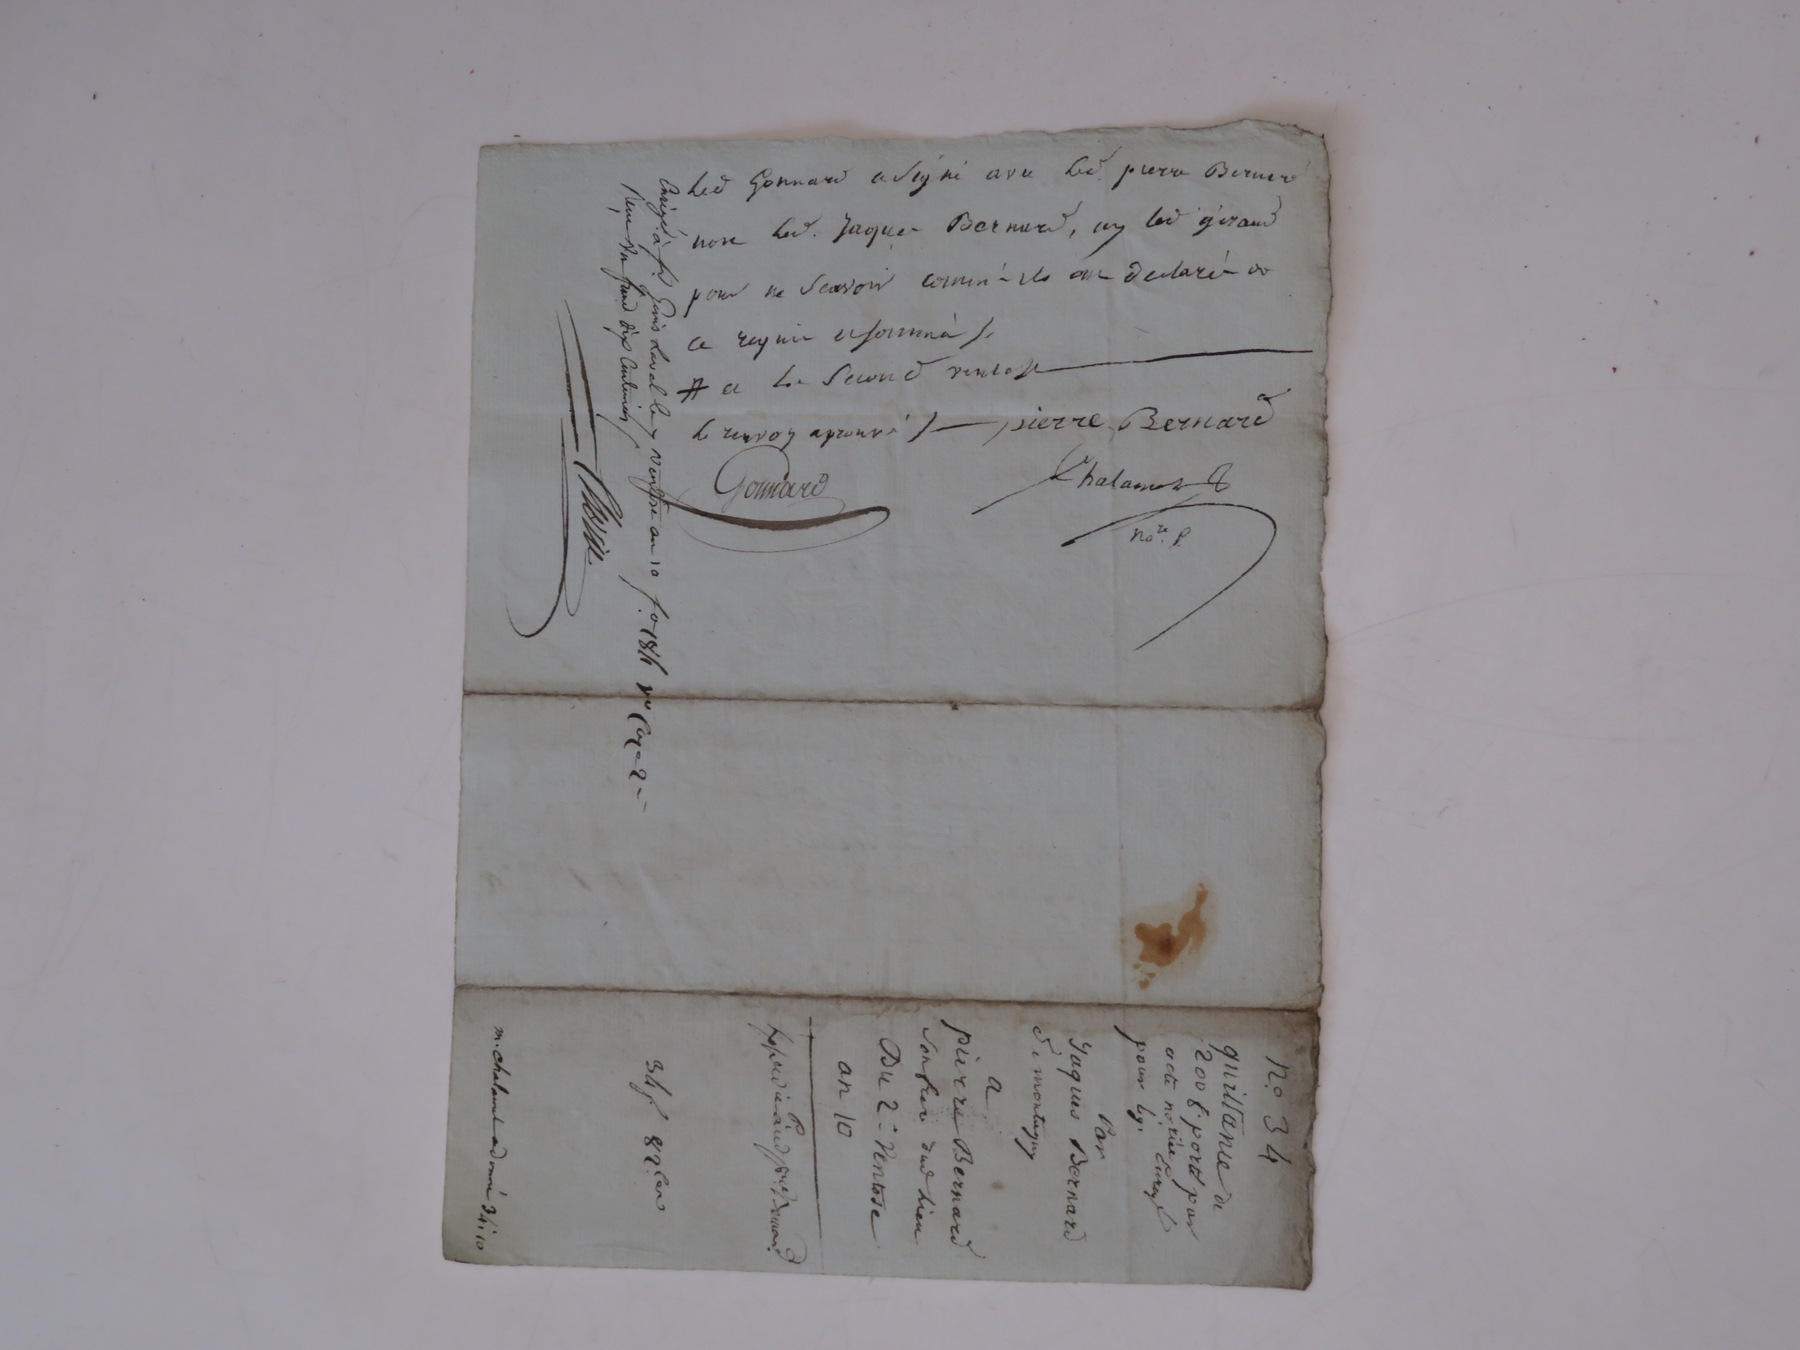 led Gonnard a signé avec led. pierre Bernard
non led. Jaques Bernard, ny led giraud
pour ne scavoir comme ils ont declaré de
ce requis et sommé /.
# a le second ventose
le renvoy aprouvé /. pierre Bernard
Gonnard
Chalamet
nore. P.
Enregé. à St Genis Laval le 7 ventose an 10 fo 184 vo Case 2
reçu un franc dix centimes
no 34
quittance de
200 ₶. porté par
acte no.rié
pour ly.
Par
Jaques Bernard
de montagny
a
pierre Bernard
son frere dud lieu
Du 2e Ventose
an 10
pierre Bernard
34f 82 Cen
m. chalamet a donné 34: 10